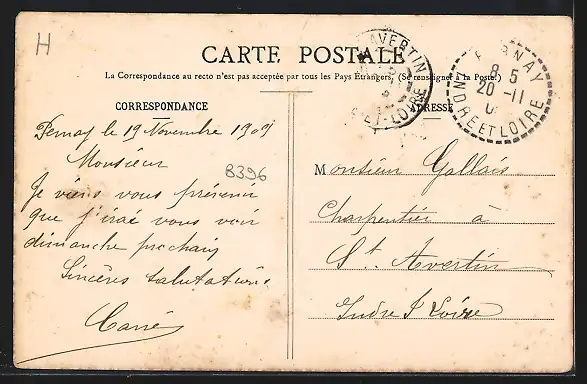 H
CARTE POSTALE
La Correspondance au recto n'est pas acceptée par tous les Pays Étrangers. (Se renseigner à la Poste.)
CORRESPONDANCE
ADRESSE
AVERTIN
ET-LOIRE
PERNAY
8 5
20 -11
INDRE ET LOIRE
Pernay le 19 Novembre 1909
Monsieur
B396
Je viens vous prévenir
que j'irai vous voir
dimanche prochain
Sincères salutations
Carré
Monsieur Gallais
Charpentier à
St. Avertin
Indre & Loire